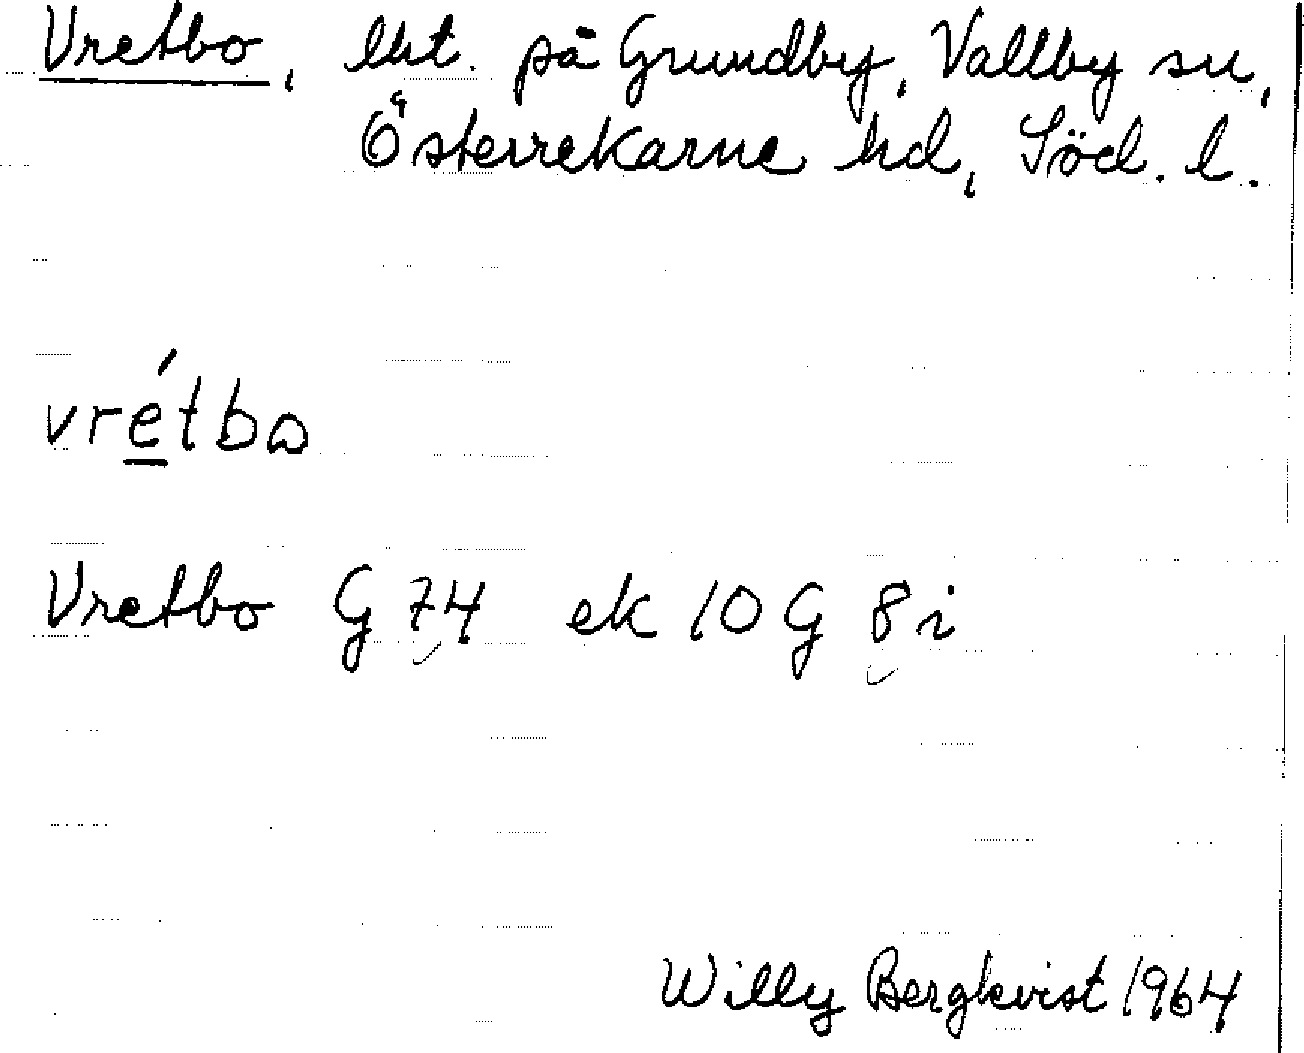 Vretbo, lht. på Grundby, Vallby sn,
Österrekarne hd, Söd. l.
vré̲tbω
Vretbo G 74 ek 10 G 8 i
Willy Bergkvist 1964